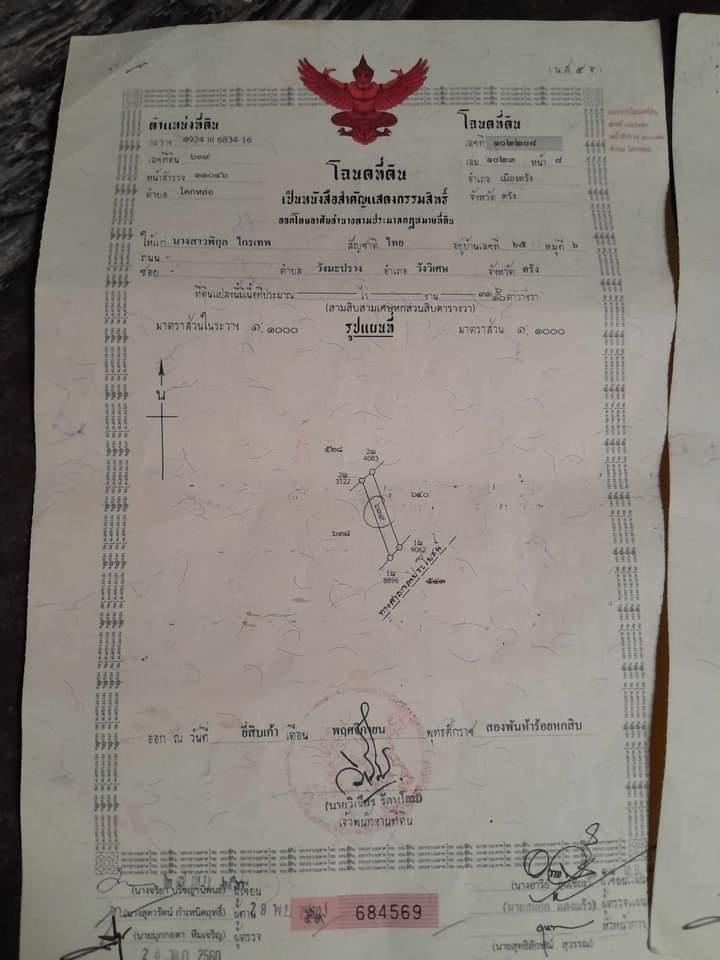 (น.ส. ๔ จ)
ตำแหน่งที่ดิน
ระวาง 4924 III 6834-16
เลขที่ดิน ๖๓๙
หน้าสำรวจ ๑๑๐๔๖
ตำบล โคกหล่อ
โฉนดที่ดิน
เลขที่ ๑๐๒๒๐๘
เล่ม ๑๐๒๓ หน้า ๘
อำเภอ เมืองตรัง
จังหวัด ตรัง
โฉนดที่ดิน
เป็นหนังสือสำคัญแสดงกรรมสิทธิ์
ออกโดยอาศัยอำนาจตามประมวลกฎหมายที่ดิน
ให้แก่ นางสาวพิกุล ไกรเทพ สัญชาติ ไทย อยู่บ้านเลขที่ ๖๕ หมู่ที่ ๖
ถนน -
ซอย - ตำบล วังมะปราง อำเภอ วังวิเศษ จังหวัด ตรัง
ที่ดินแปลงนี้มีเนื้อที่ประมาณ ไร่ งาน ๓๓ ๖/๑๐ ตารางวา
(สามสิบสามเศษหกส่วนสิบตารางวา)
มาตราส่วนในระวาง ๑:๑๐๐๐ รูปแผนที่ มาตราส่วน ๑:๑๐๐๐
น
๕๒๘
2ผ
4083
2ผ
3122
๖๔๐
๖๓๙
๖๓๘
1ผ
9082
1ผ
8896
ทางสาธารณประโยชน์
๕๔๓
ออก ณ วันที่ ยี่สิบเก้า เดือน พฤศจิกายน พุทธศักราช สองพันห้าร้อยหกสิบ
เจ้าพนักงานที่ดิน
ผู้เขียน
(นางสุดารัตน์ กำเหนิดฤทธิ์) ผู้ทาน
ผู้ตรวจ
2560
28 พ.ย.
684569
(นายสุทธิลักษณ์ สุวรรณ)